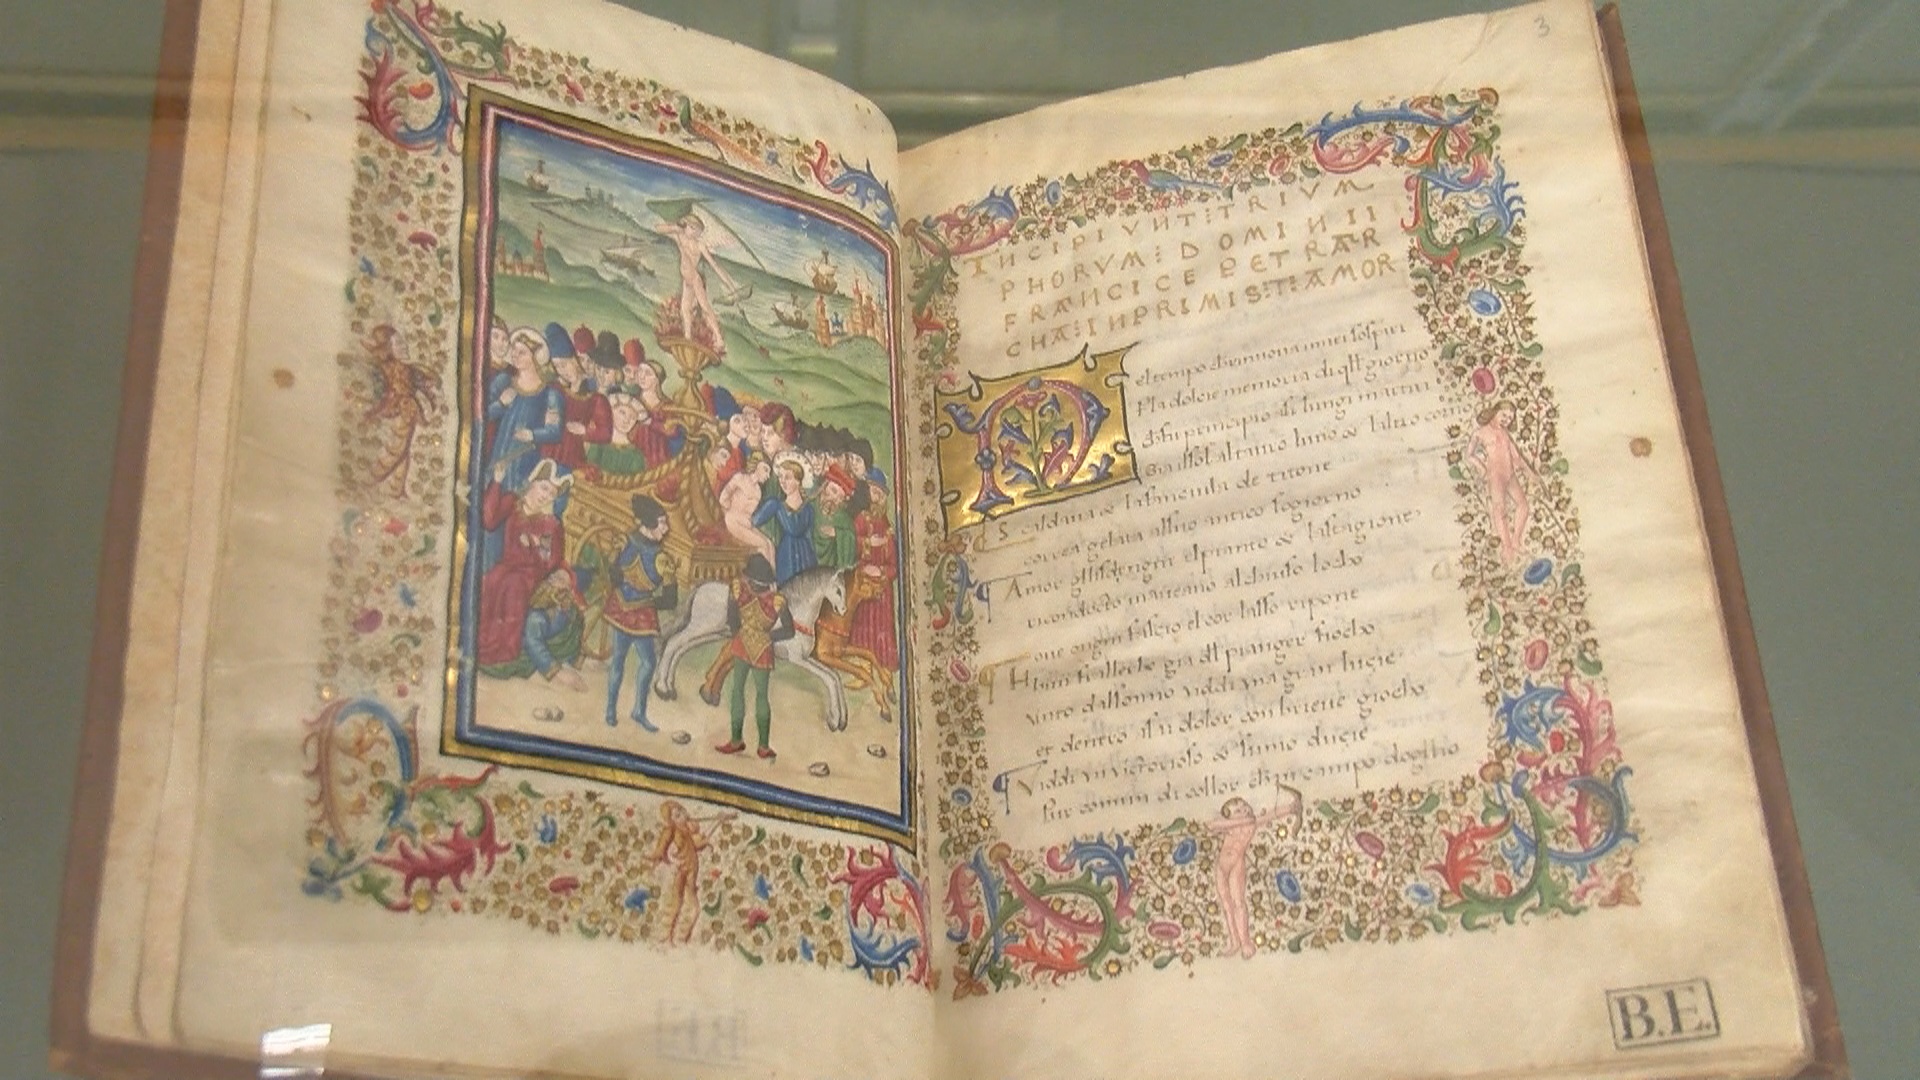 3
INCIPIVNT:TRIVM
PHORVM:DOMINII
FRANCICE PETRAR
CHA:INPRIMIS:T:AMOR
N
el tempo che rinnova i miei sospiri
Pla dolcie memoria di qll giorno
che fu principio di lungi martiri
Gia il sol al tauro luno & laltro corno
Scaldaua & la fanciulla de titone
correa gelata al suo antico sogiorno
Amor elpianto & lastagione
ricondocto maueano al chiuso locho
oue ogni fascio el cor lasso ripone
gia dl pianger fiocho
vinto dal sonno viddi vna gran lucie
et dentro dolor con brieue giocho
Viddi vn & sumo ducie
Pur comun di color chin campo doglio
B.E.